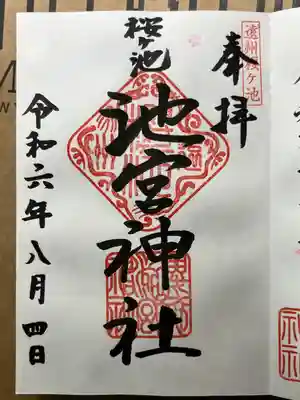 遠州桜ヶ池
奉拝
桜ヶ池
池宮神社
令和六年八月四日